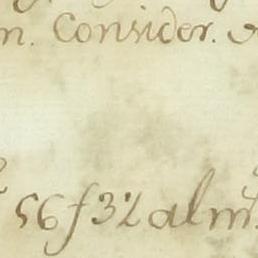 n. Consider.
56f32 alm